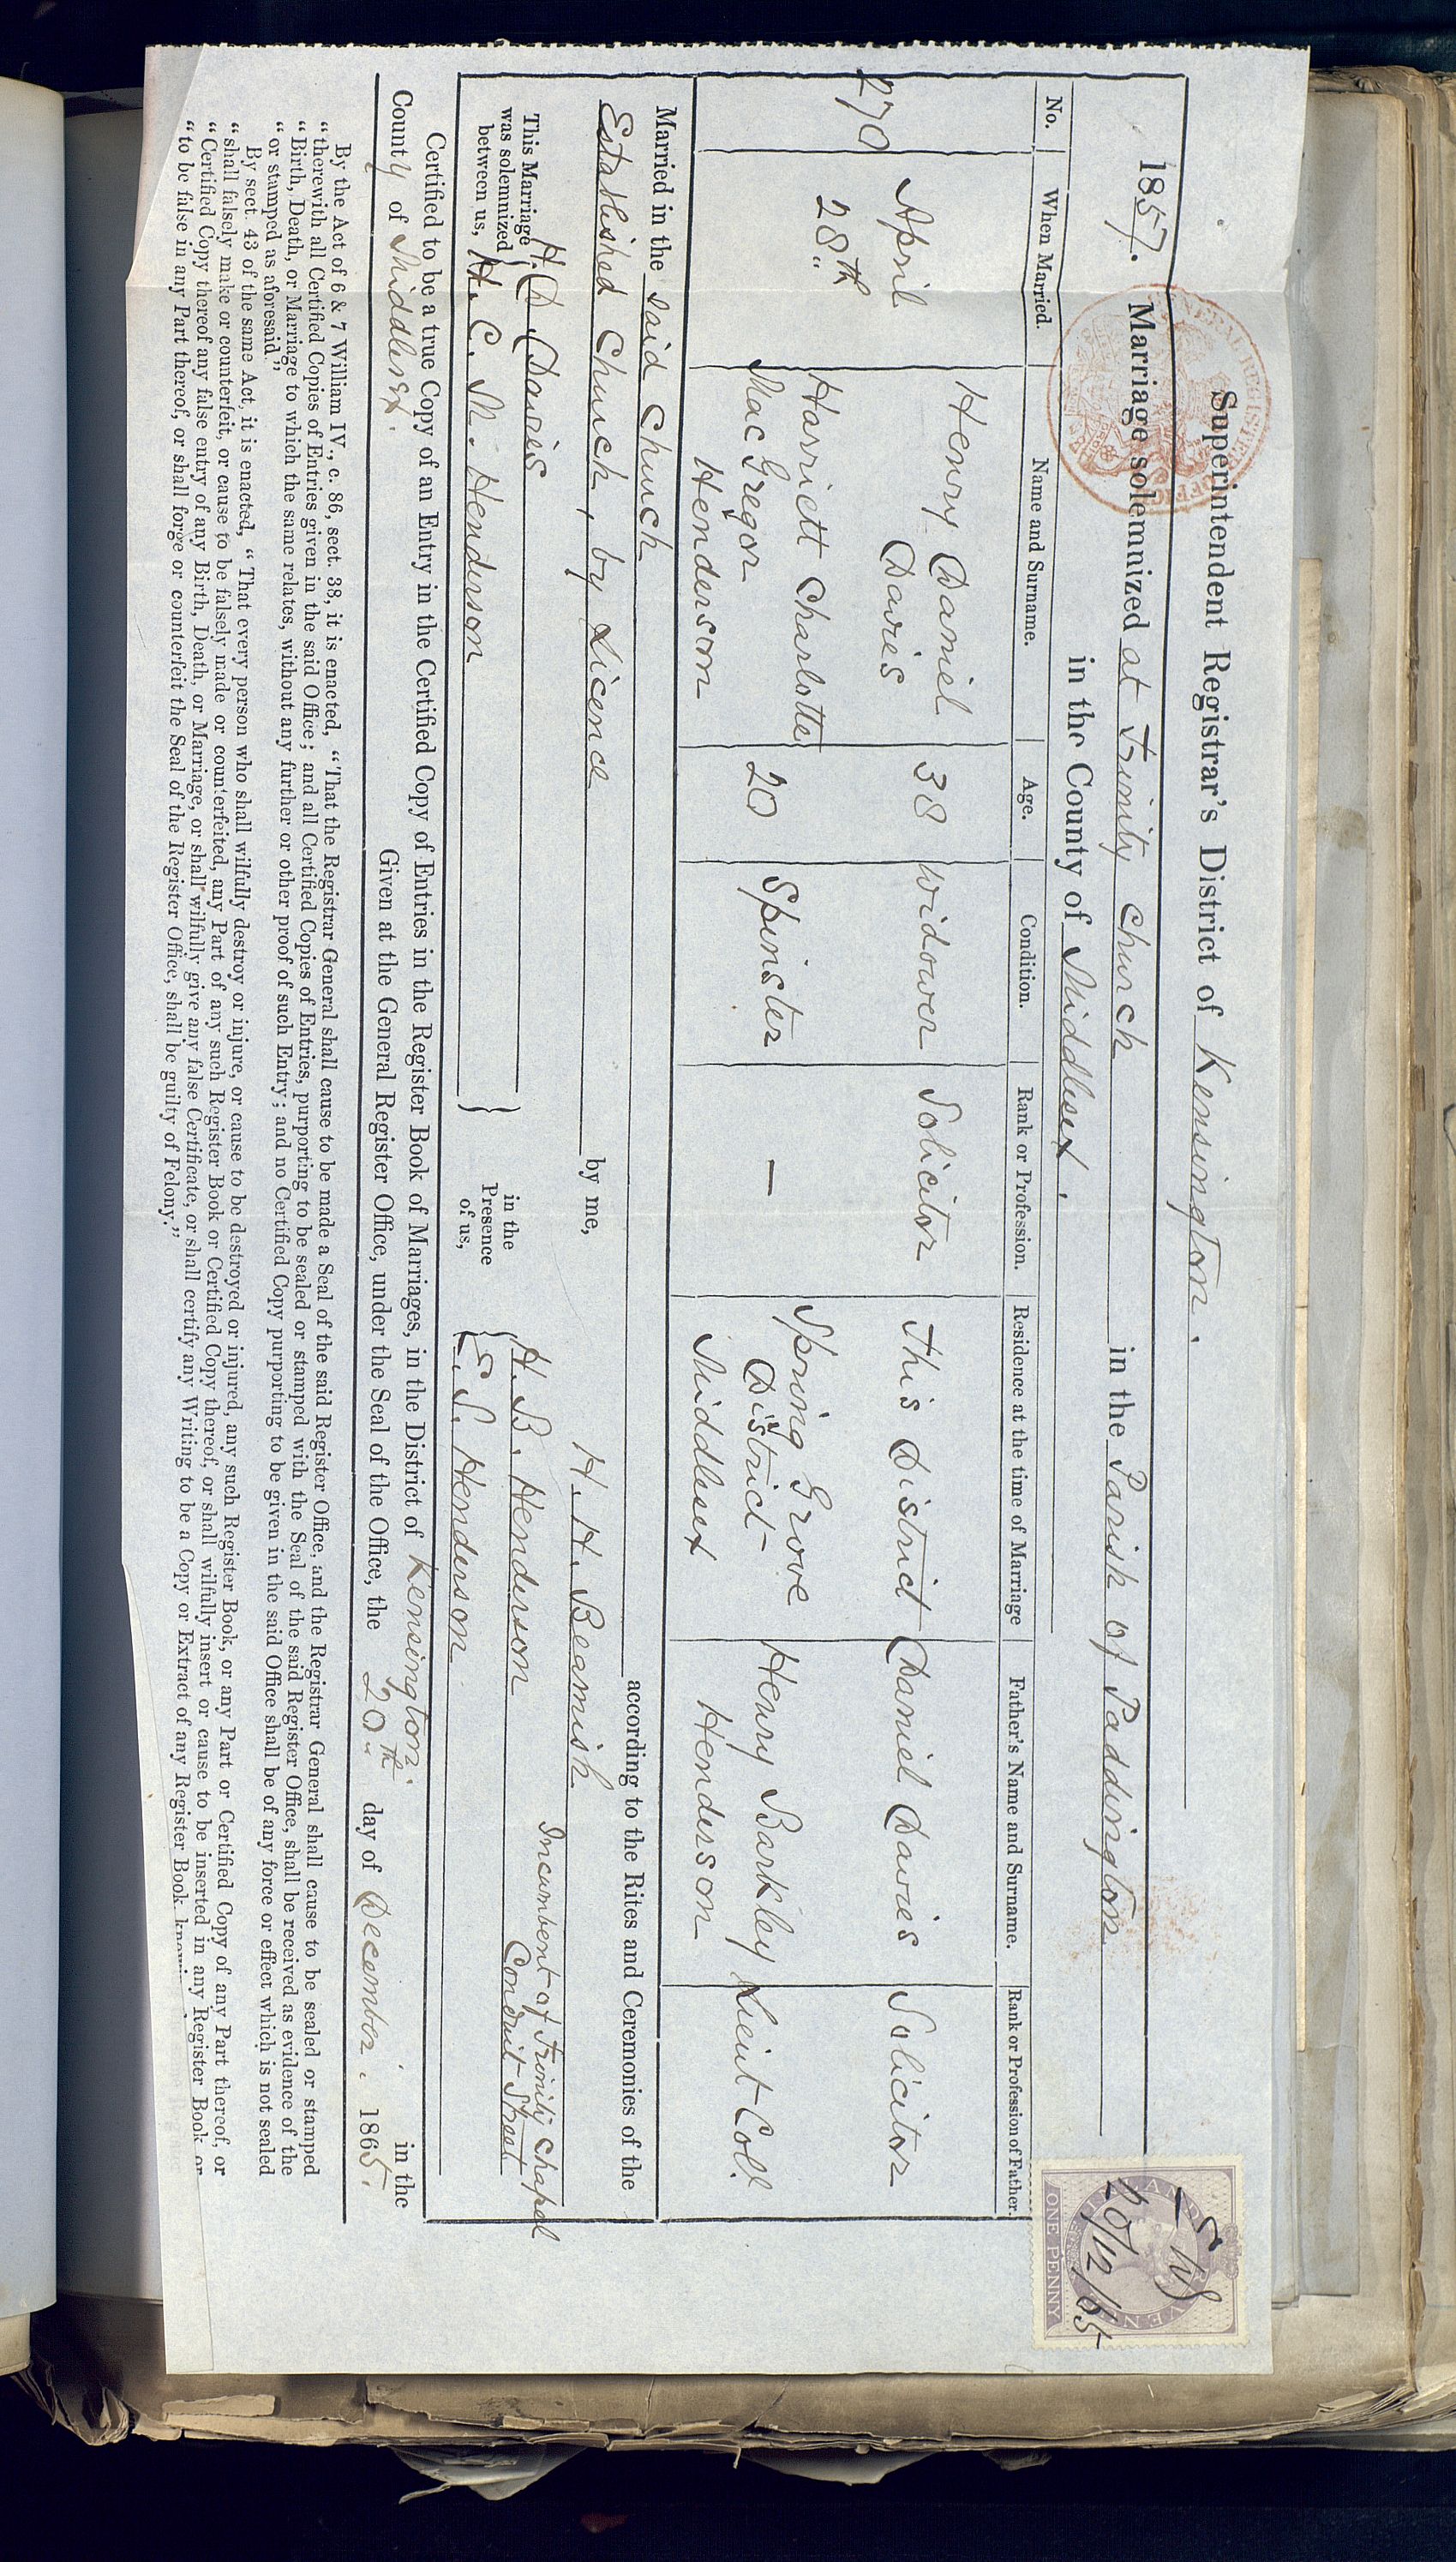 Superintendent Registrar's District of Kensington.
1857. Marriage solemnized at Trinity Church in the Parish of Paddington
in the County of Middlesex.
No. When Married. Name and Surname. Age. Condition. Rank or Profession. Residence at the time of Marriage Father's Name and Surname. Rank or Profession of Father.
270 April 28th Henry Daniel Davies 38 Widower Solicitor This District Daniel Davies Solicitor
Harriett Charlotte MacGregor Henderson 20 Spinster — Spring Grove District Middlesex Henry Barkley Henderson Lieut Coll.
Married in the said Church according to the Rites and Ceremonies of the
Established Church, by Licence by me, H. H. Beamish
Incumbent of Trinity Chapel
Conduit Street
This Marriage was solemnized between us,
H. D Davies
H. C. M. Henderson
in the Presence of us,
H. B. Henderson
E. S. Henderson
Certified to be a true Copy of an Entry in the Certified Copy of Entries in the Register Book of Marriages, in the District of Kensington. in the
County of Middlesex. Given at the General Register Office, under the Seal of the Office, the 20th day of December. 1865.
By the Act of 6 & 7 William IV., c. 86, sect. 38, it is enacted, "That the Registrar General shall cause to be made a Seal of the said Register Office, and the Registrar General shall cause to be sealed or stamped
"therewith all Certified Copies of Entries given in the said Office; and all Certified Copies of Entries, purporting to be sealed or stamped with the Seal of the said Register Office, shall be received as evidence of the
"Birth, Death, or Marriage to which the same relates, without any further or other proof of such Entry; and no Certified Copy purporting to be given in the said Office shall be of any force or effect which is not sealed
"or stamped as aforesaid."
By sect. 43 of the same Act, it is enacted, "That every person who shall wilfully destroy or injure, or cause to be destroyed or injured, any such Register Book, or any Part or Certified Copy of any Part thereof, or
"shall falsely make or counterfeit, or cause to be falsely made or counterfeited, any Part of any such Register Book or Certified Copy thereof, or shall wilfully insert or cause to be inserted in any Register Book or
"Certified Copy thereof any false entry of any Birth, Death, or Marriage, or shall wilfully give any false Certificate, or shall certify any Writing to be a Copy or Extract of any Register Book
"to be false in any Part thereof, or shall forge or counterfeit the Seal of the Register Office, shall be guilty of Felony."
20/12/65
ONE PENNY